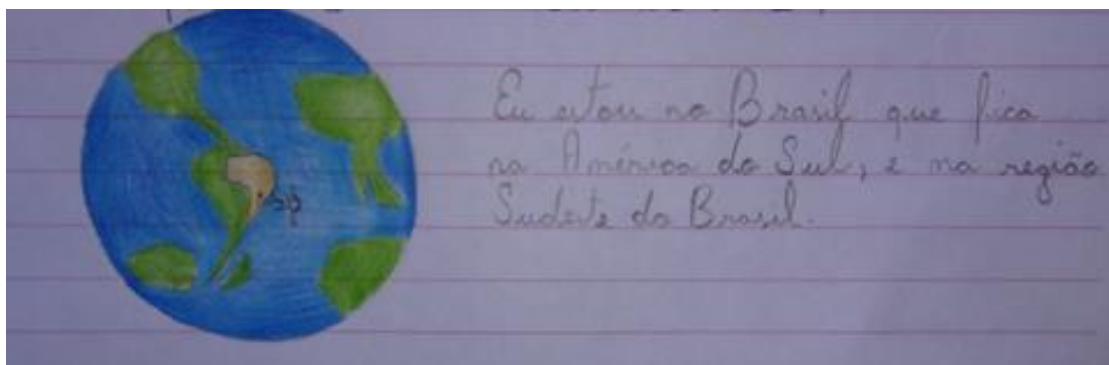 Eu estou no Brasil que fica
na América do Sul, e na região
Sudeste do Brasil.
SP